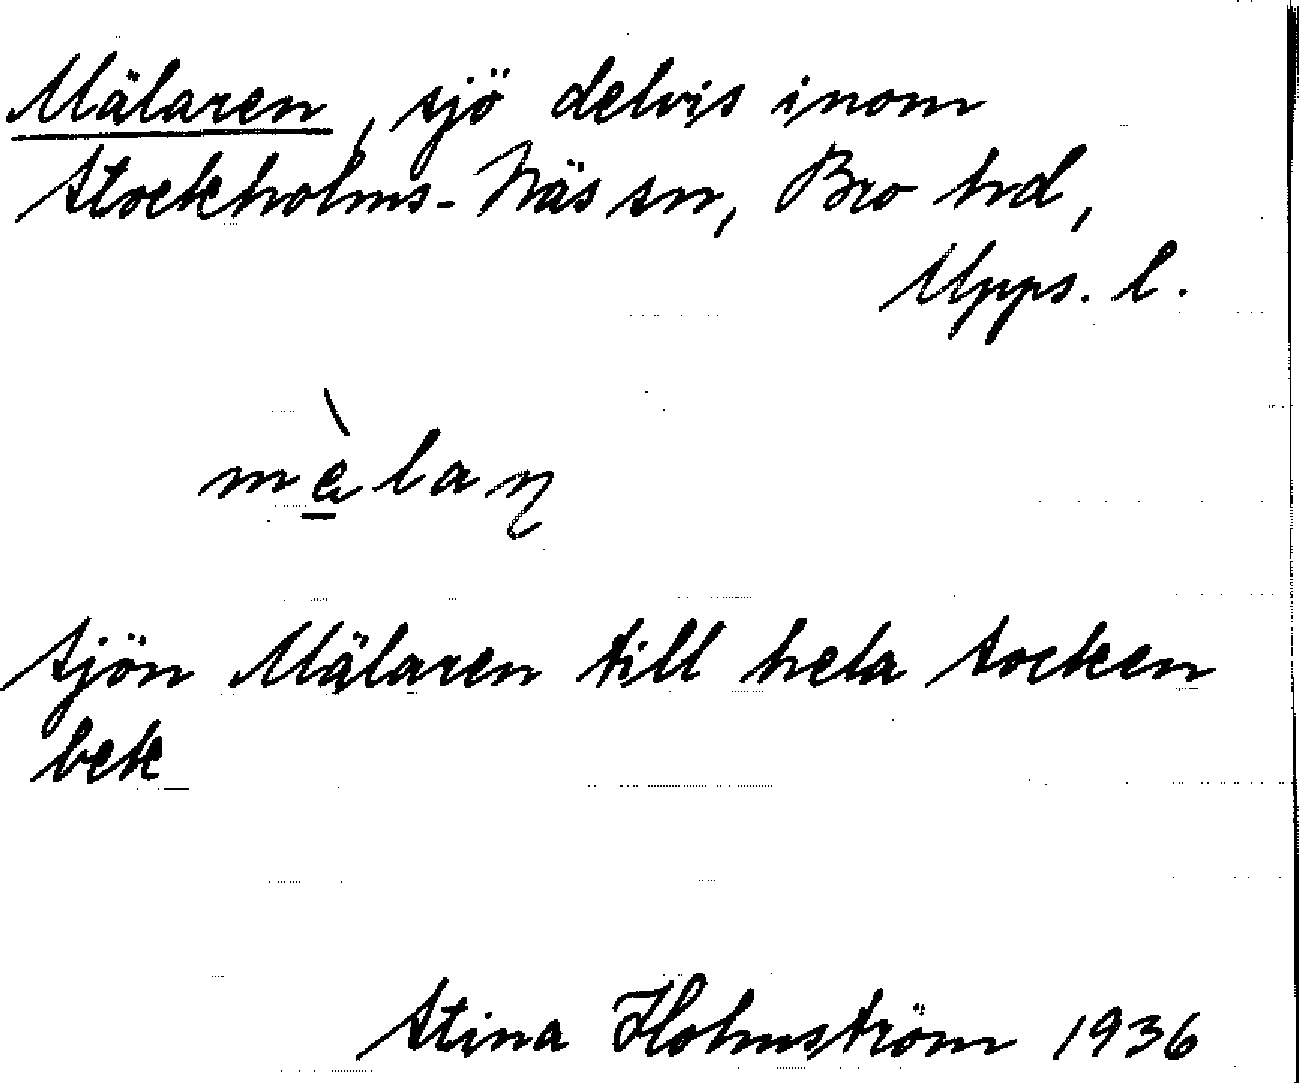 Mälaren, sjö delvis inom
Stockholms-Näs sn, Bro hd,
Upps. l.
mèlaɳ
Sjön Mälaren till hela socken
bek
Stina Holmström 1936